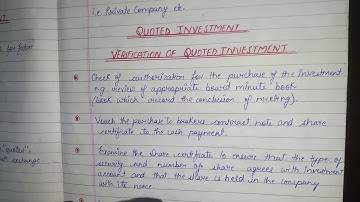 i.e. Private Company etc.
QUOTED INVESTMENT
VERIFICATION OF QUOTED INVESTMENT
for future
Check of authorization for the purchase of the Investment
e.g. review of appropriate board minute book
(book which record the conclusion of meeting).
Vouch the purchase to brokers contract note and share
certificate to the cash payment.
"quoted",
exchange
Examine the share certificate to ensure that the type of
security and number of share agrees with investment
account and that the share is held in the company
with its name.